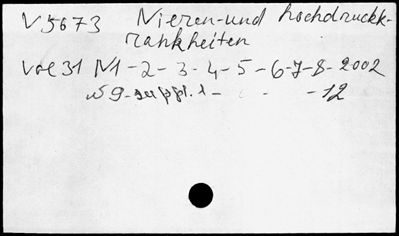 V5673 Nieren- und hochdruckk-
rankheiten
Vol 31 N1-2-3-4-5-6-7-8-2002
N9-suppl.1- -12